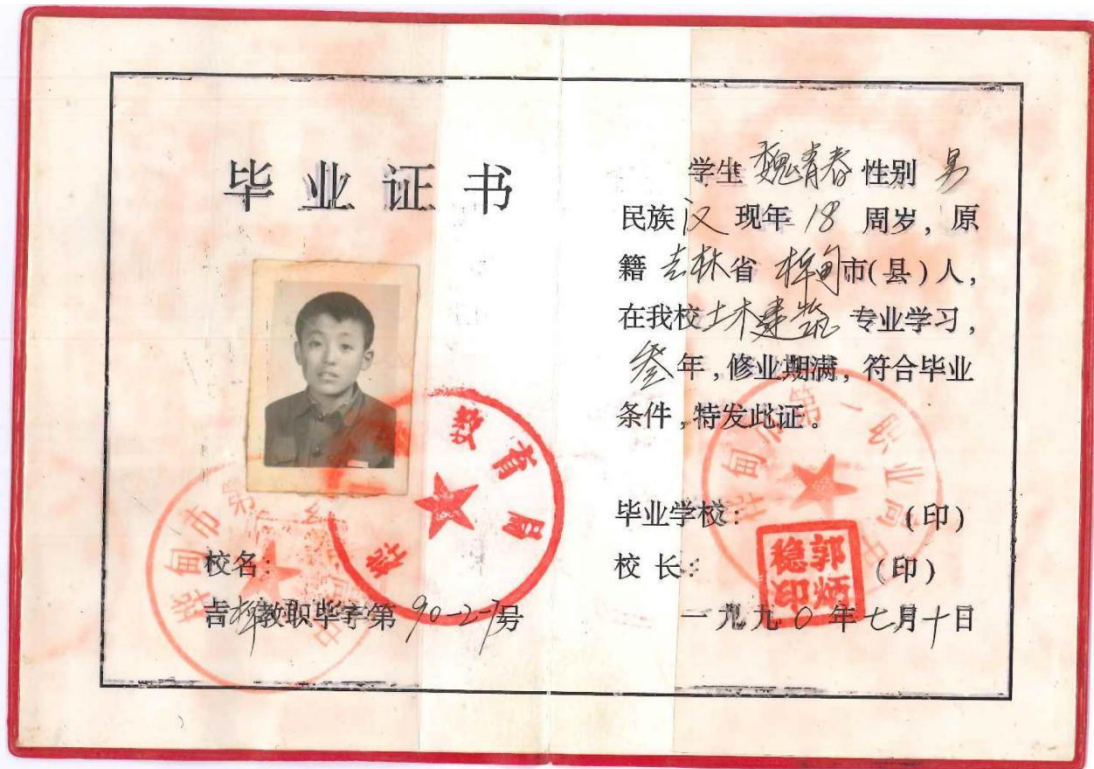 毕业证书
教育局
桦甸市第
校名:
吉桦教职毕字第90-2-7号
学生 魏青春 性别 男
民族 汉 现年 18 周岁, 原
籍 吉林省 桦甸市(县)人,
在我校土木建筑 专业学习,
叁年, 修业期满, 符合毕业
条件, 特发此证。
桦甸市第一职业高中
毕业学校: (印)
校 长: (印)
郭炳稳印
一九九〇年七月十日